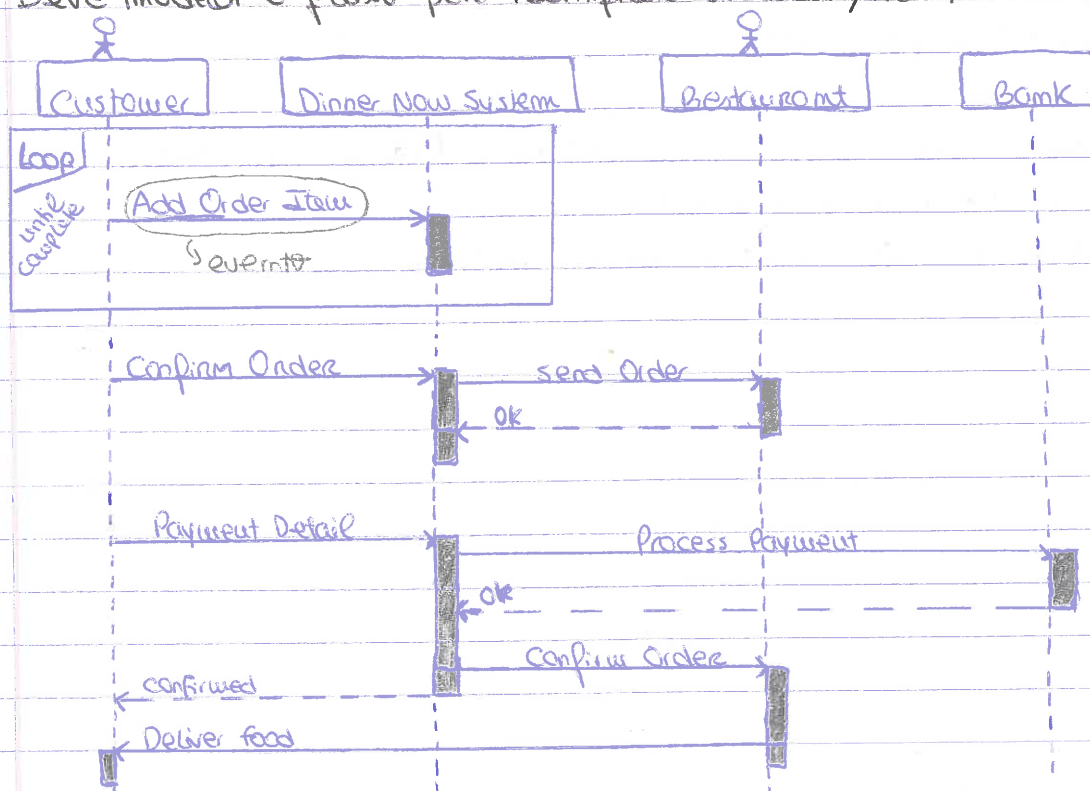 Customer
Dinner Now System
Restaurant
Bank
Loop
until
complete
Add Order Item
evento
Confirm Order
send Order
Ok
Payment Detail
Process Payment
Ok
Confirm Order
confirmed
Deliver food